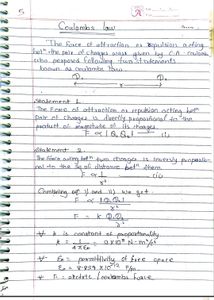 5
Coulombs law
"The force of attraction or repulsion acting
betⁿ the pair of charges was given by C.A. Coulomb
who proposed following two statements
known as coulombs law.
Statement 1.
The Force of attraction or repulsion acting betⁿ
pair of charges is directly proportional to the
product of magnitude of its charges.
F ∝ |Q₁Q₂| (i)
Statement 2:
The force acting betⁿ two charges is inversely proportio-
-nal to the sq of distance betⁿ them.
F ∝ 1/r² (ii)
Combining eqⁿ i) and ii) we get
F ∝ |Q₁Q₂|/r²
F = k Q₁Q₂/r²
k is constant of proportionality
k = 1/4πε₀ = 9x10⁹ N·m²/c²
ε₀ = permittivity of free space
ε₀ = 8.854 x10⁻¹²
F = electric / coulombs force